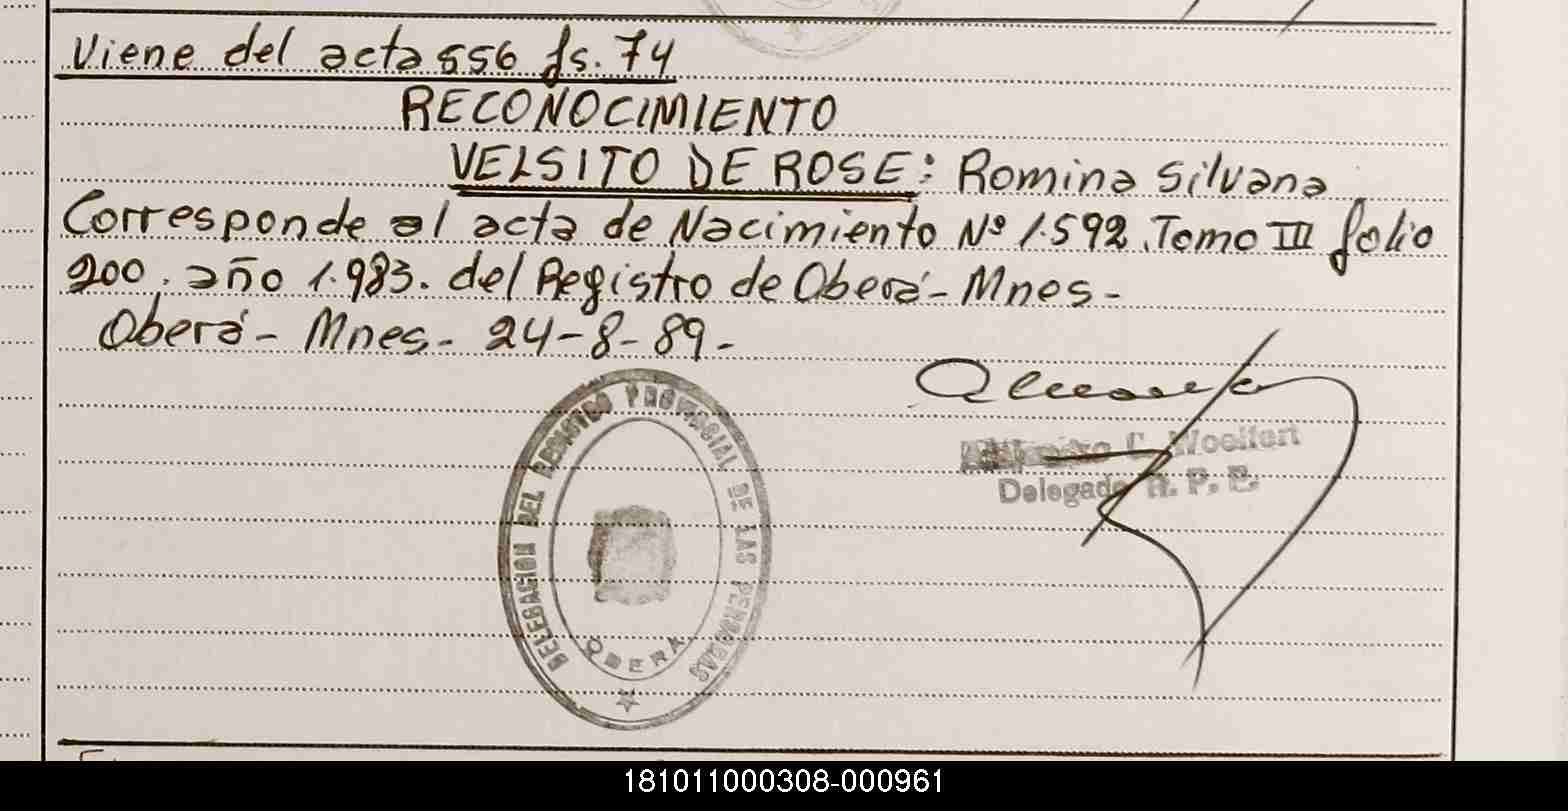 Viene del acta 556 fs. 74
RECONOCIMIENTO
VELSITO DE ROSE: Romina Silvana
Corresponde al acta de Nacimiento Nº 1.592. Tomo III folio
200. año 1.983. del Registro de Oberá - Mnes -
Oberá - Mnes - 24-8-89 -
DELEGACION DEL REGISTRO PROVINCIAL DE LAS PERSONAS
OBERA
Woelfert
Delegado R. P. P.
181011000308-000961